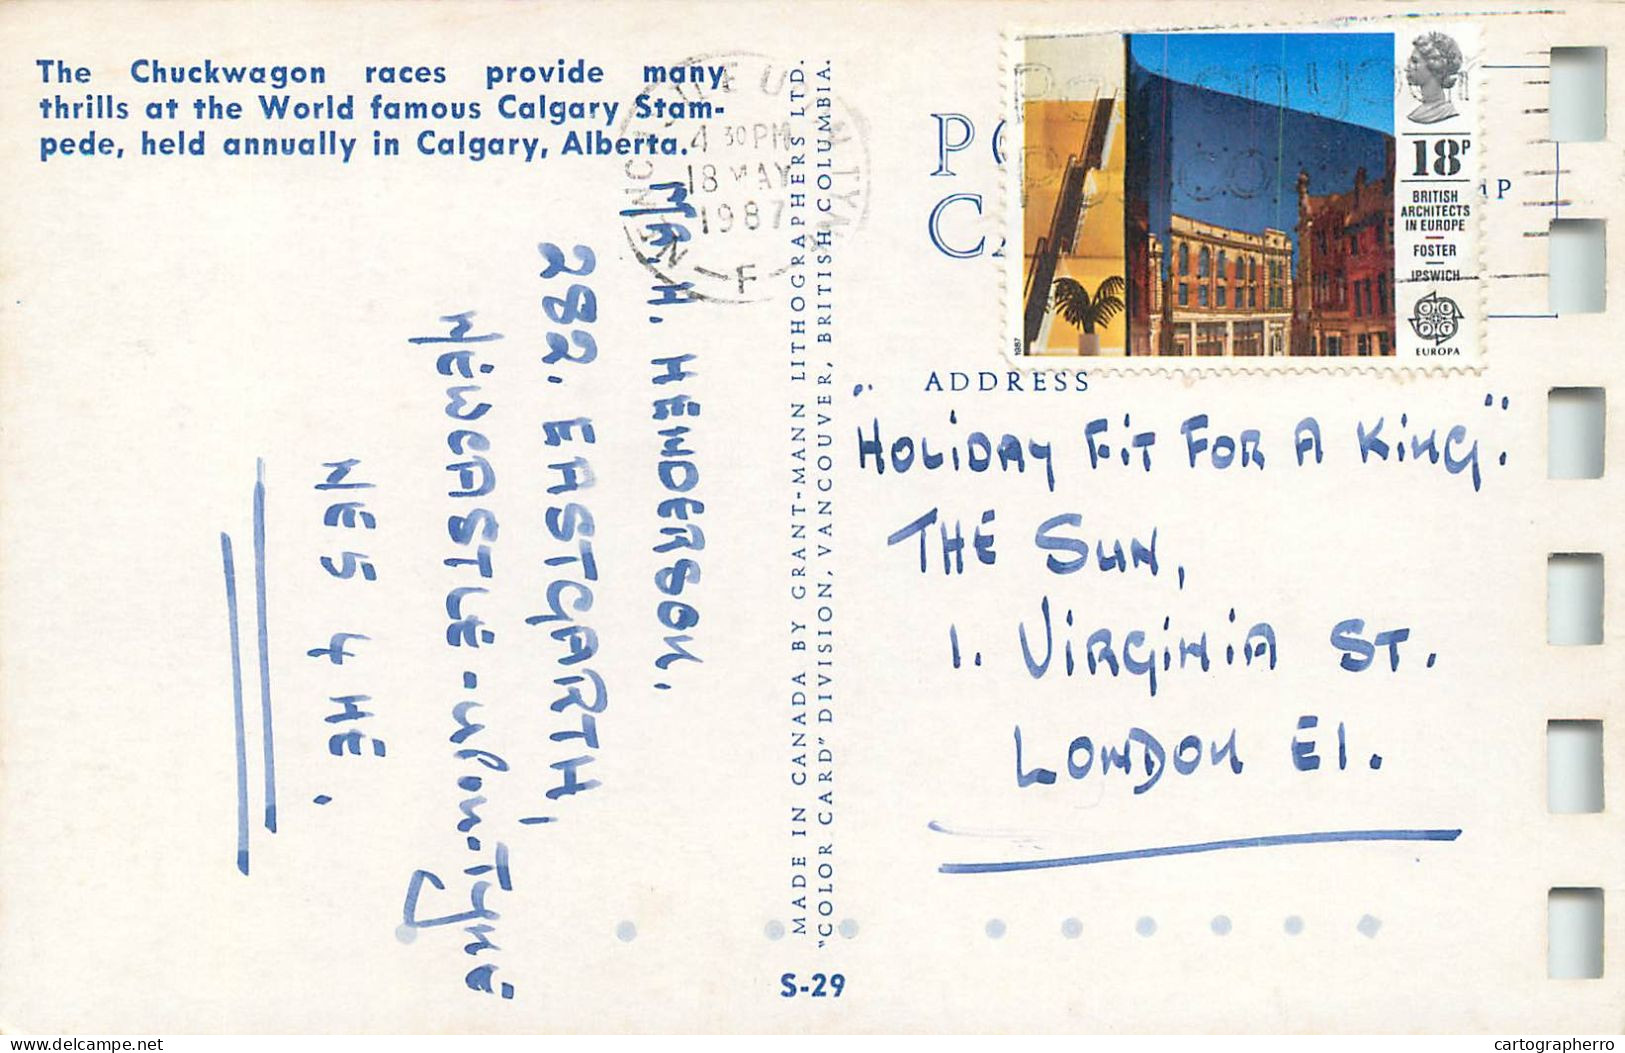 The Chuckwagon races provide many
thrills at the World famous Calgary Stam-
pede, held annually in Calgary, Alberta.
4 30 PM
18 MAY
1987
F
18P
BRITISH
ARCHITECTS
IN EUROPE
FOSTER
IPSWICH
EUROPA
1987
ADDRESS
"HOLIDAY FIT FOR A KING".
THE SUN,
1. VIRGINIA ST.
LONDON E1.
MR. H. HENDERSON.
282. EASTGARTH,
NEWCASTLE-UPON-TYNE
NE5 4HE.
MADE IN CANADA BY GRANT-MANN LITHOGRAPHERS LTD.
"COLOR CARD" DIVISION, VANCOUVER, BRITISH COLUMBIA.
S-29
delcampe.net
cartographerro